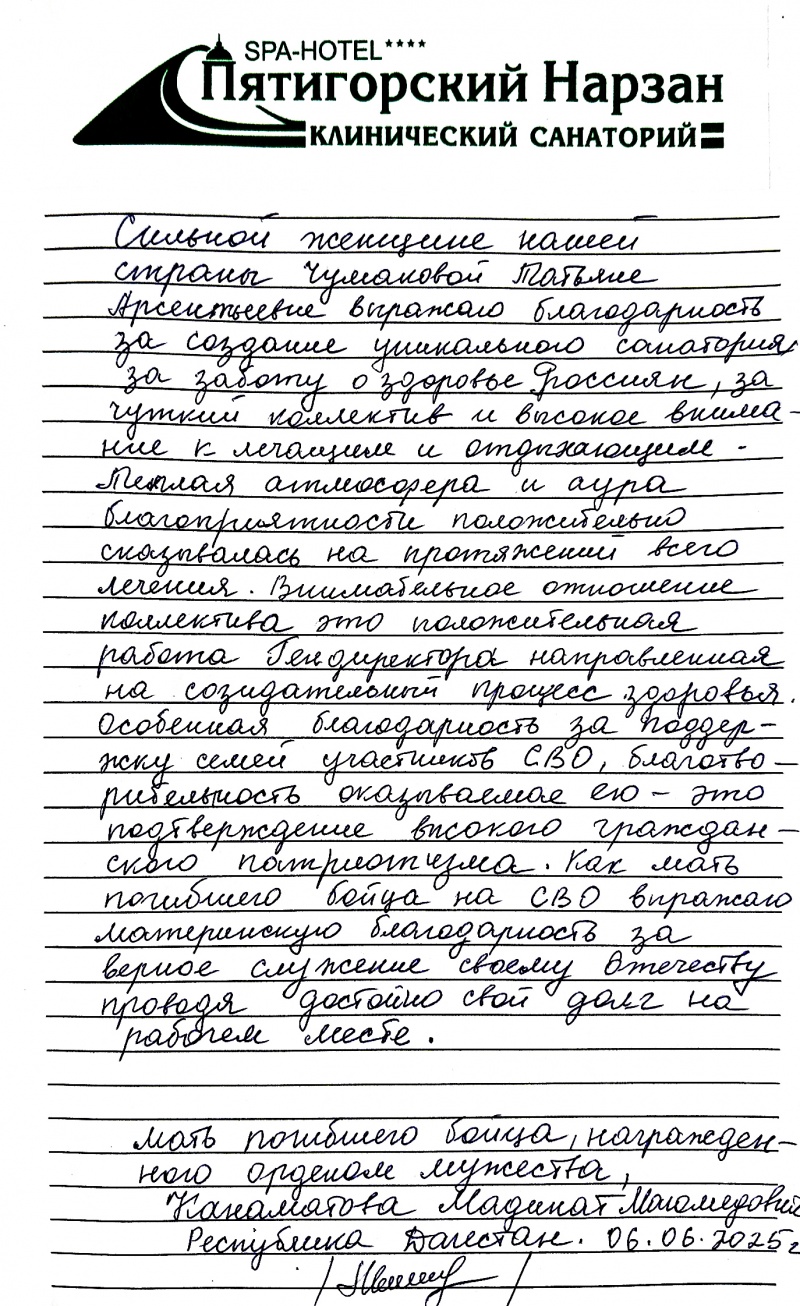 SPA-HOTEL****
Пятигорский Нарзан
КЛИНИЧЕСКИЙ САНАТОРИЙ
Сильной женщине нашей
страны Чумаковой Татьяне
Арсентьевне выражаю благодарность
за создание уникального санатория,
за заботу о здоровье Россиян, за
чуткий коллектив и высокое внима-
ние к лечащим и отдыхающим.
Теплая атмосфера и аура
благоприятности положительно
сказывалась на протяжений всего
лечения. Внимательное отношение
коллектива это положительная
работа Гендиректора направленная
на созидательный процесс здоровья.
Особенная благодарность за поддер-
жку семей участников СВО, благотво-
рительность оказываемое ею - это
подтверждение высокого граждан-
ского патриотизма. Как мать
погибшего бойца на СВО выражаю
материнскую благодарность за
верное служение своему Отечеству
проводя достойно свой долг на
рабочем месте.
мать погибшего бойца, награжден-
ного орденом мужества,
Канаматова Мадинат Магомедовна
Республика Дагестан. 06.06.2025г